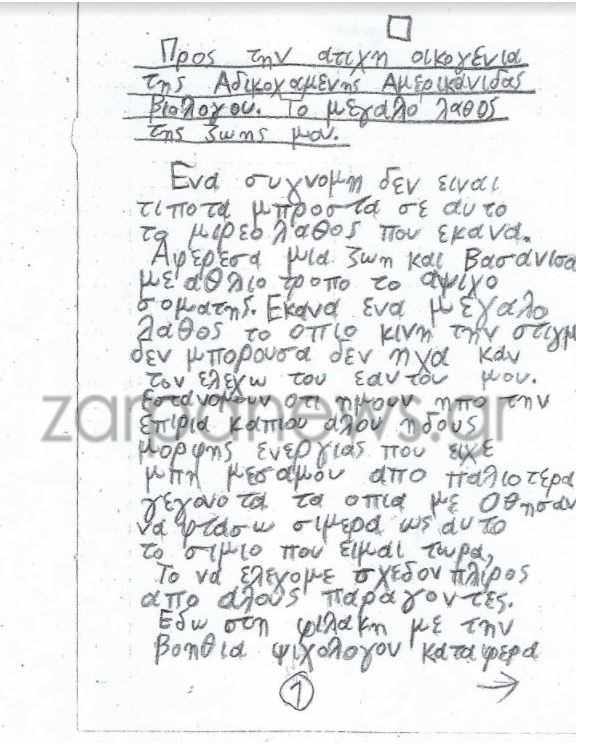 Προς την ατιχη οικογενια
της Αδικοχαμενης Αμερικανιδας
βιολογου. Το μεγαλο λαθος
της ζωης μου.
Ενα συγνομη δεν ειναι
τιποτα μπροστα σε αυτο
το μιρεο λαθος που εκανα.
Αφερεσα μια ζωη και βασανισα
με αθλιο τροπο το αψιχο
σοματης. Εκανα ενα μεγαλο
λαθος το οπιο κινη την στιγμ
δεν μπορουσα δεν ηχα καν
τον ελεχω του εαυτου μου.
Εστανομουν οτι ημουν ηπο την
επιρια καπιου αλου ηδους
μορφης ενεργιας που ειχε
μπη μεσαμου απο παλιοτερα
γεγονοτα τα οπια με οθησαν
να φτασω σιμερα ως αυτο
το σιμιο που ειμαι τωρα,
Το να ελεγομε σχεδον πλιρος
απο αλους παραγοντες.
Εδω στη φιλακη με την
βοηθια ψιχολογου καταφερα
1
zarpanews.gr